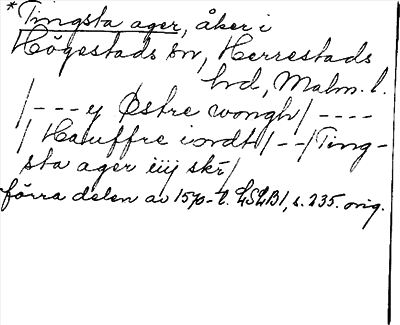 *Tingsta ager, åker i
Högestads sn, Herrestads
hd, Malm. l.
/---y Østre wongh/----
/Hauffre iordt/--/Ting-
sta ager iiij skr/
förra delen av 1570-t. LSLB1, s. 235. orig.